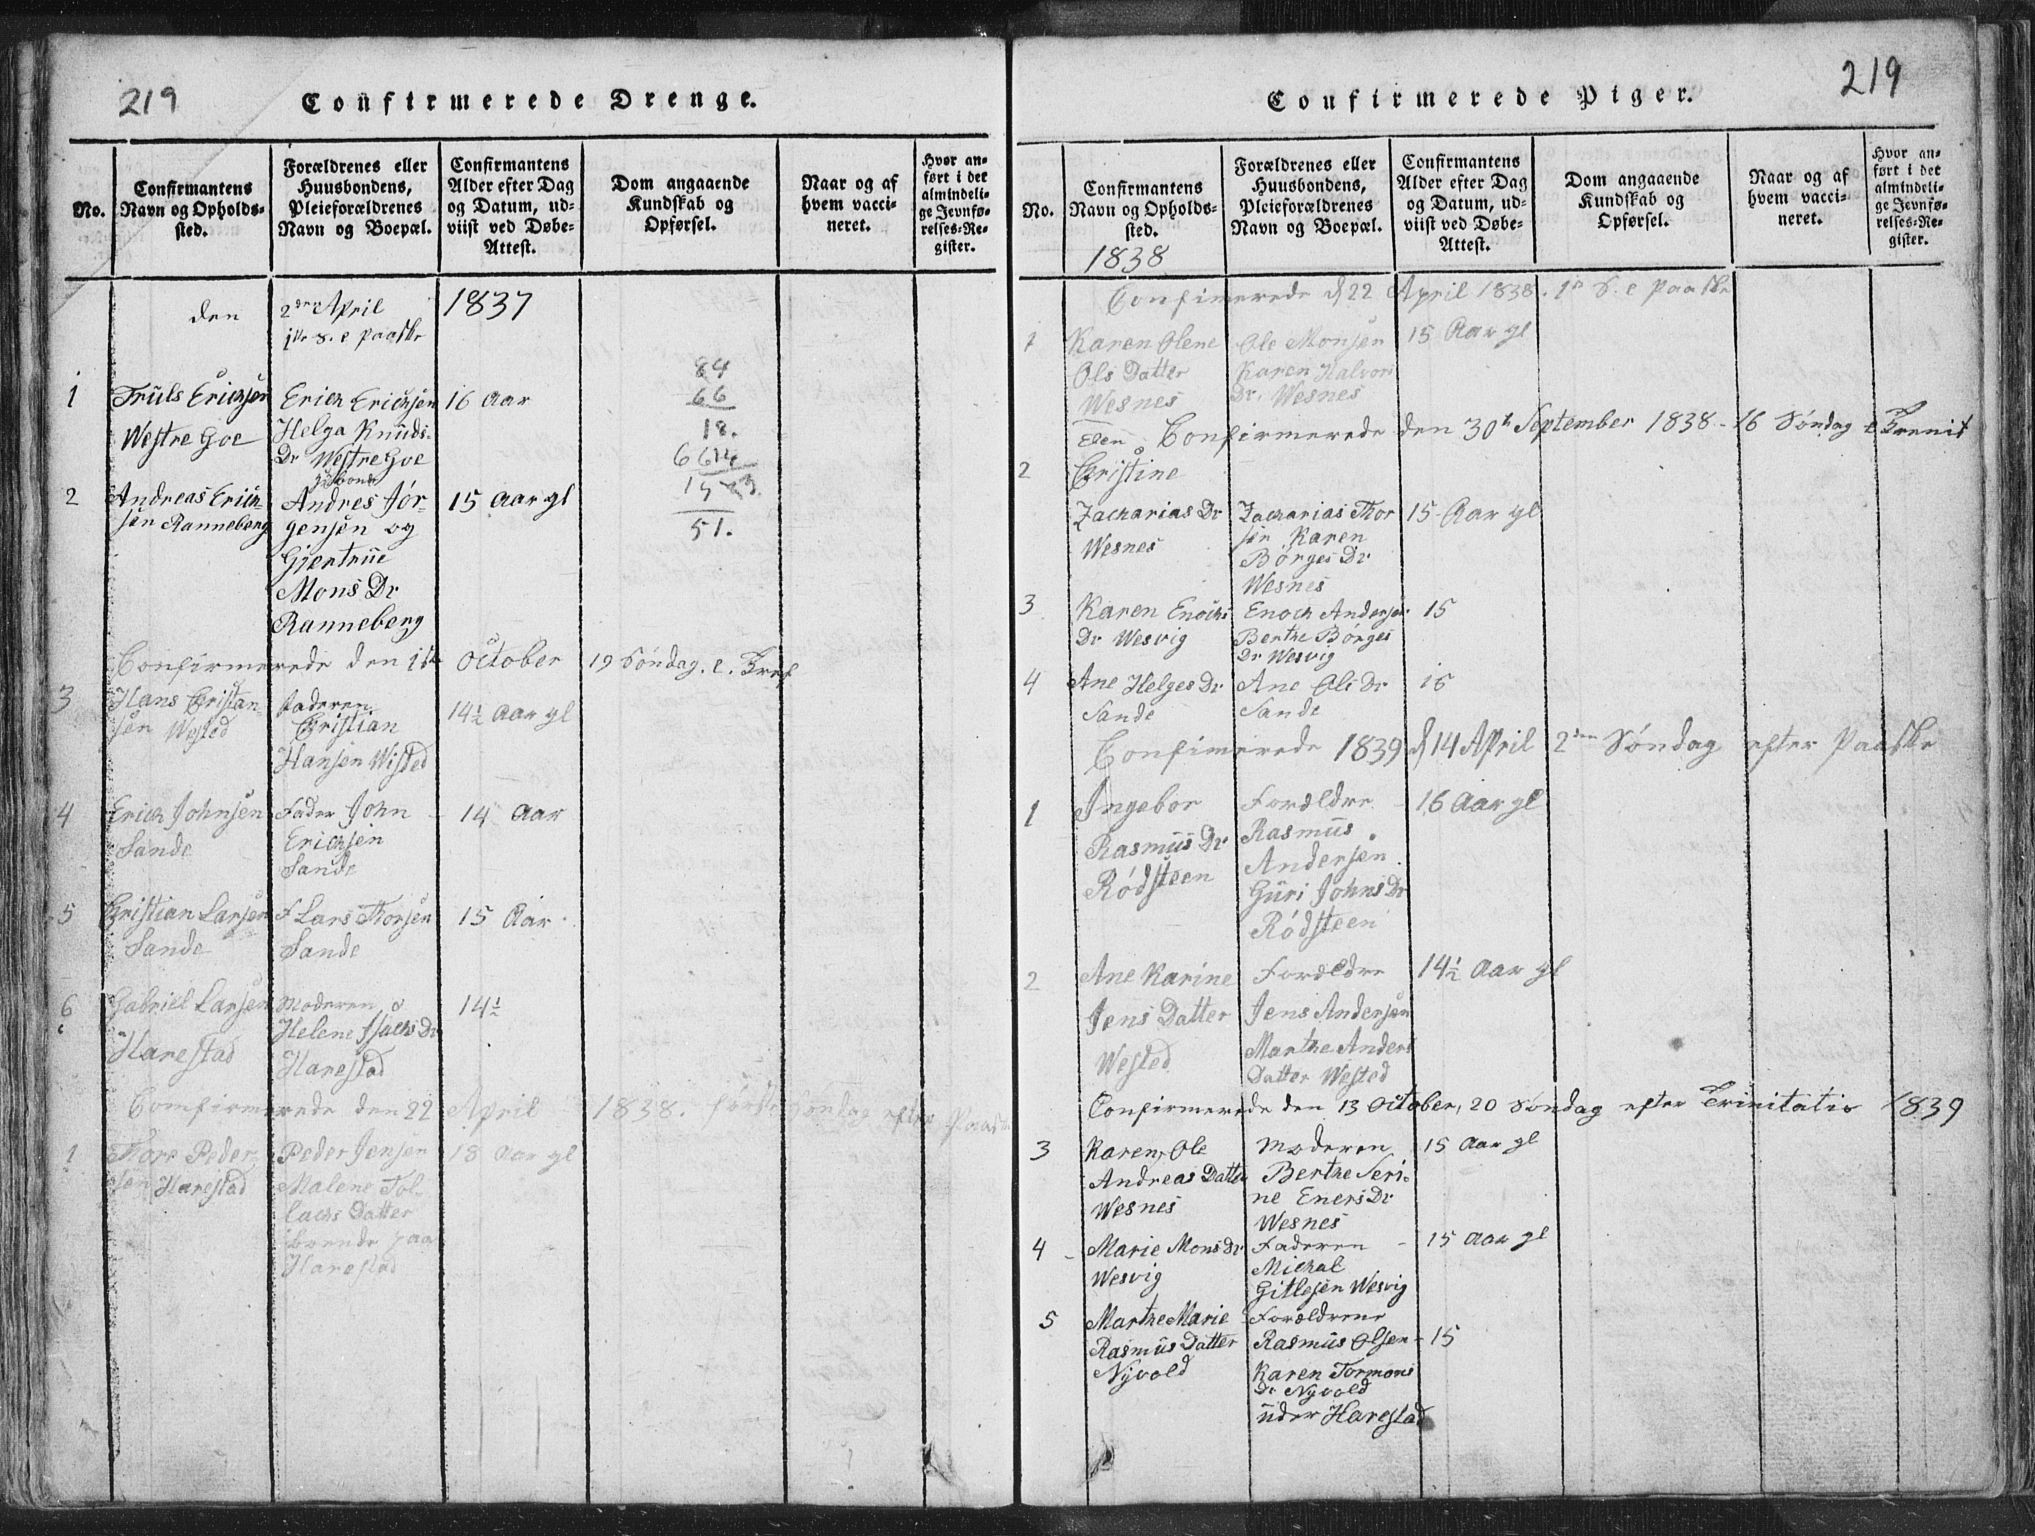 219
Confirmerede Drenge.
No.
Confirmantens
Navn og Opholds-
sted.
Forældrenes eller
Huusbondens,
Pleieforældrenes
Navn og Boepæl.
Confirmantens
Alder efter Dag
og Datum, ud-
viist ved Døbe-
Attest.
Dom angaaende
Kundskab og
Opførsel.
Naar og af
hvem vacci-
neret.
Hvor an-
ført i det
almindeli-
ge Jevnfø-
relses-Re-
gister.
den 2den April 1837
1ste S. e Paaske
1 Truls Erichsen
Westre Goe
Erich Erichsen
Helga Knuds-
Dr Westre Goe
16 Aar
84
66
18.
51.
2 Andreas Erich-
sen Ranneberg
Andres Jør-
gensen og
Gjertrue
Mons Dr
Ranneberg
15 Aar gl
Confirmerede den 1ste October 19 Søndag. e. Tref
3 Hans Cristan-
sen Wested
Faderen
Cristian
Hansen Wisted
14½ Aar gl
4 Erich Johnsen
Sande
Fader John
Erichsen
Sande
14 Aar
5 Cristian Larsen
Sande
F Lars Thorsen
Sande
15 Aar
6 Gabriel Larsen
Harestad
Moderen
Helene Isachs Dr
Harestad
14½
Comfirmerede den 22 April 1838. første Søndag efter Paaske
1 Thore Peder
sen Harestad
Peder Jensen
Malene Tol-
lachs Datter
boende paa
Harestad
18 Aar gl
219
Confirmerede Piger.
No.
Confirmantens
Navn og Opholds-
sted.
1838
Forældrenes eller
Huusbondens,
Pleieforældrenes
Navn og Boepæl.
Confirmantens
Alder efter Dag
og Datum, ud-
viist ved Døbe-
Attest.
Dom angaaende
Kundskab og
Opførsel.
Naar og af
hvem vacci-
neret.
Hvor an-
ført i det
almindeli-
ge Jevnfø-
relses-Re-
gister.
Confimerede d 22 April 1838. 1ste S. e Paaske
1 Karen Olene
Ols Datter
Wesnes
Ole Monsen
Karen Halvor
Dr. Wesnes
15 Aar gl
Confirmerede den 30te September 1838 - 16 Søndag e Trenit
2 Elen
Cristine
Zacharias Dr
Wesnes
Zacharias Thor
sen Karen
Børges Dr
Wesnes
15 Aar gl
3 Karen Enochs
Dr Wesvig
Enoch Andersen
Berthe Børges
Dr Wesvig
15
4 Ane Helges Dr
Sande
Ane Ols Dr
Sande
Confimerede 1839 d 14 April 2den Søndag efter Paaske
1 Ingebor
Rasmus Dr
Rødsteen
Forældre
Rasmus
Andersen
Guri Johns Dr
Rødsteen
16 Aar gl
2 Ane Karine
Jens Datter
Wested
Forældre
Jens Andersen
Marthe Anders
Datter Wested
14½ Aar gl
Confirmerede den 13 October, 20 Søndag efter Trinitatis 1839
3 Karen Ole
Andreas Datter
Wesnes
Moderen
Berthe Seri-
ne Eners Dr
Wesnes
15 Aar gl
4 Marie Mons Dr
Wesvig
Faderen
Michal
Gitlesen Wesvig
15 Aar gl
5 Marthe Marie
Rasmus Datter
Nyvold
Forældrene
Rasmus Olsen
Karen Tormons
Dr Nyvold
uder Harestad
15